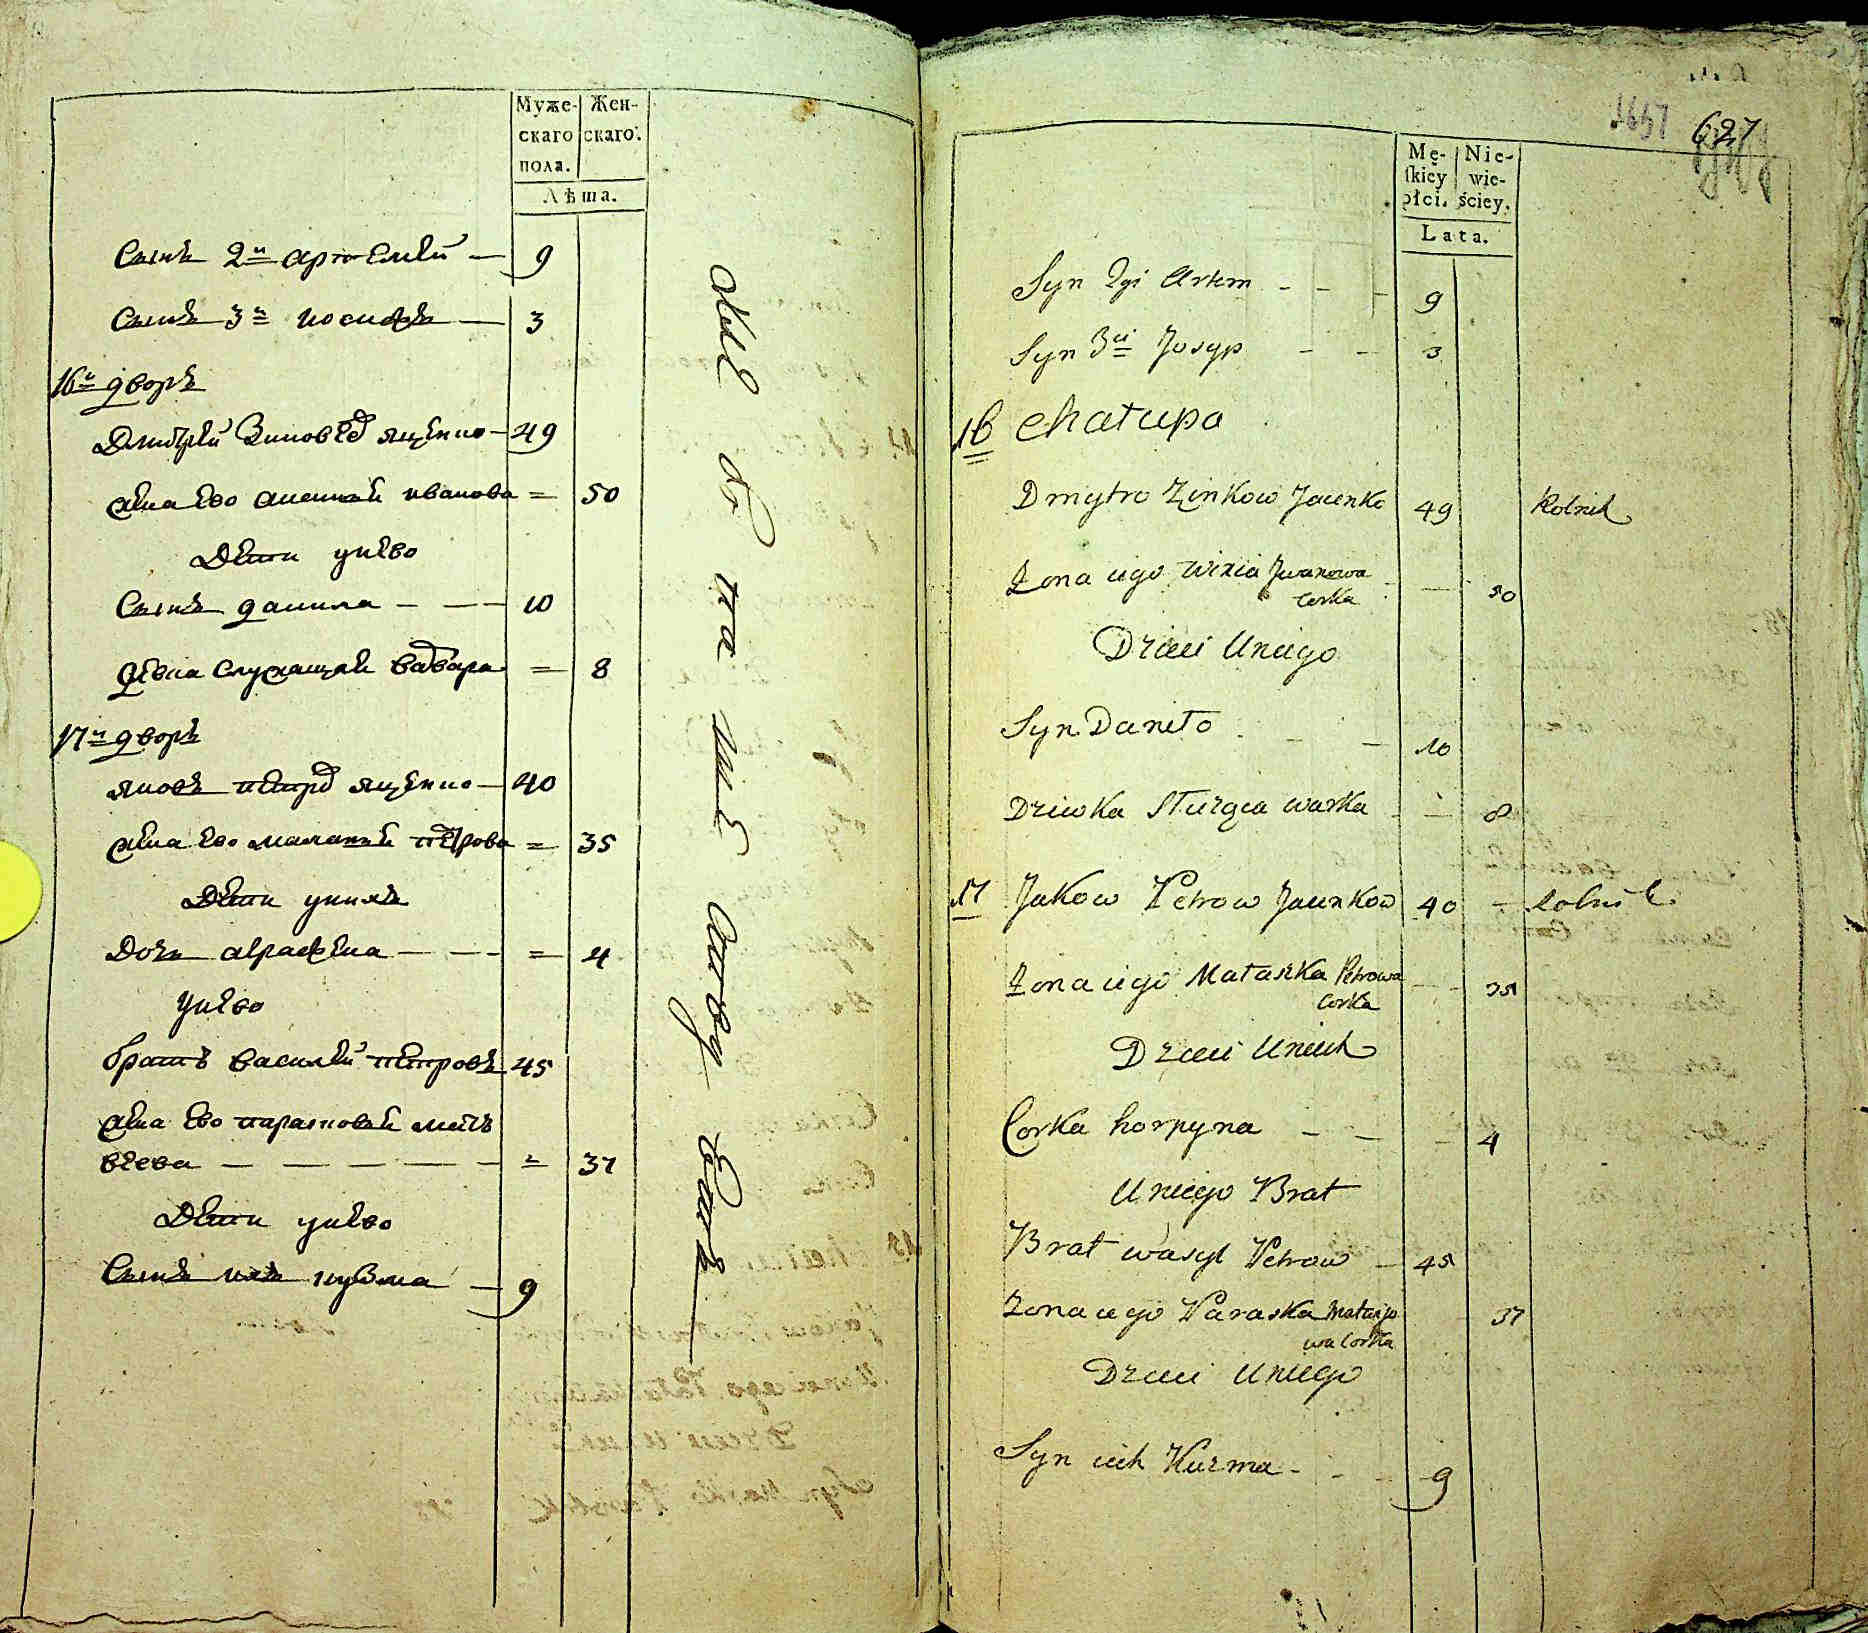 Муже-
скаго
пола.
Жен-
скаго.
Лѣта.
Сынъ 2й артемей — 9
Сынъ 3й иосифъ — 3
16й дворъ
Дмитрей Зиновѣв ященко — 49
жена ево ивановa = 50
Дети унево
Сынъ данила — — — 10
девка служащая варвара = 8
17й дворъ
яковъ петров ященко — 40
жена ево маланья петрова = 35
Дети унихъ
Дочь аграфена — — — = 4
Унево
братъ василей петровъ 45
жена ево парасковья матъ
веева — — — — — = 37
Дети унево
Сынъ ихъ кузма — 9
627
Mę-
skiey
płci.
Nie-
wie-
ściey.
Lata.
Syn 2gi Artem - - - 9
Syn 3ci Josyp - - 3
16 chałupa
Dmytro Zinkow Jacenko 49 Rolnik
Żona iego Iwanowa
corka — 50
Dzieci Uniego
Syn Daneło - - — 10
Dziewka Służąca warka - — 8
17 Jakow Petrow Jacenkow 40 — Rolnik
Żona iego Małaszka Petrowa
Corka - - 35
Dzieci Unich
Corka horpyna — — - 4
Uniego Brat
Brat wasyl Petrow — 45
Zona iego Paraska Matwijo
wa Corka 37
Dzieci Uniego
Syn ich Kuzma - - - 9